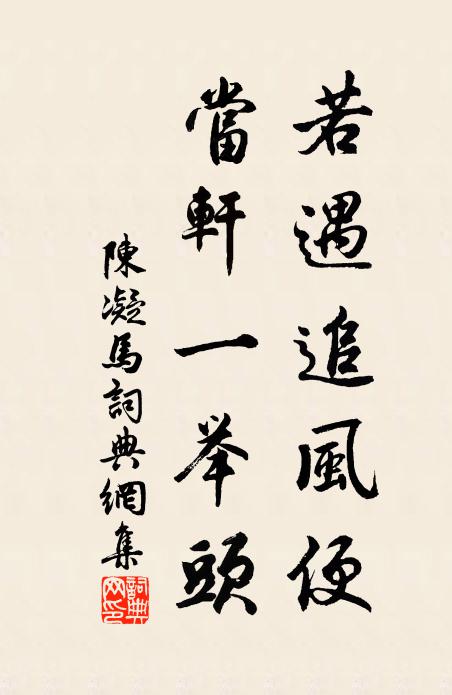 若遇追風便
當軒一举頭
陳凝馬詞典網集
詞典网印